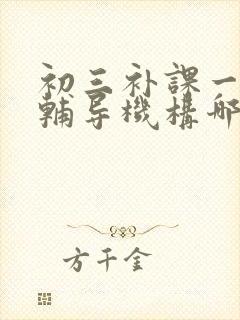 初三补課一
輔导機構哪
方千金